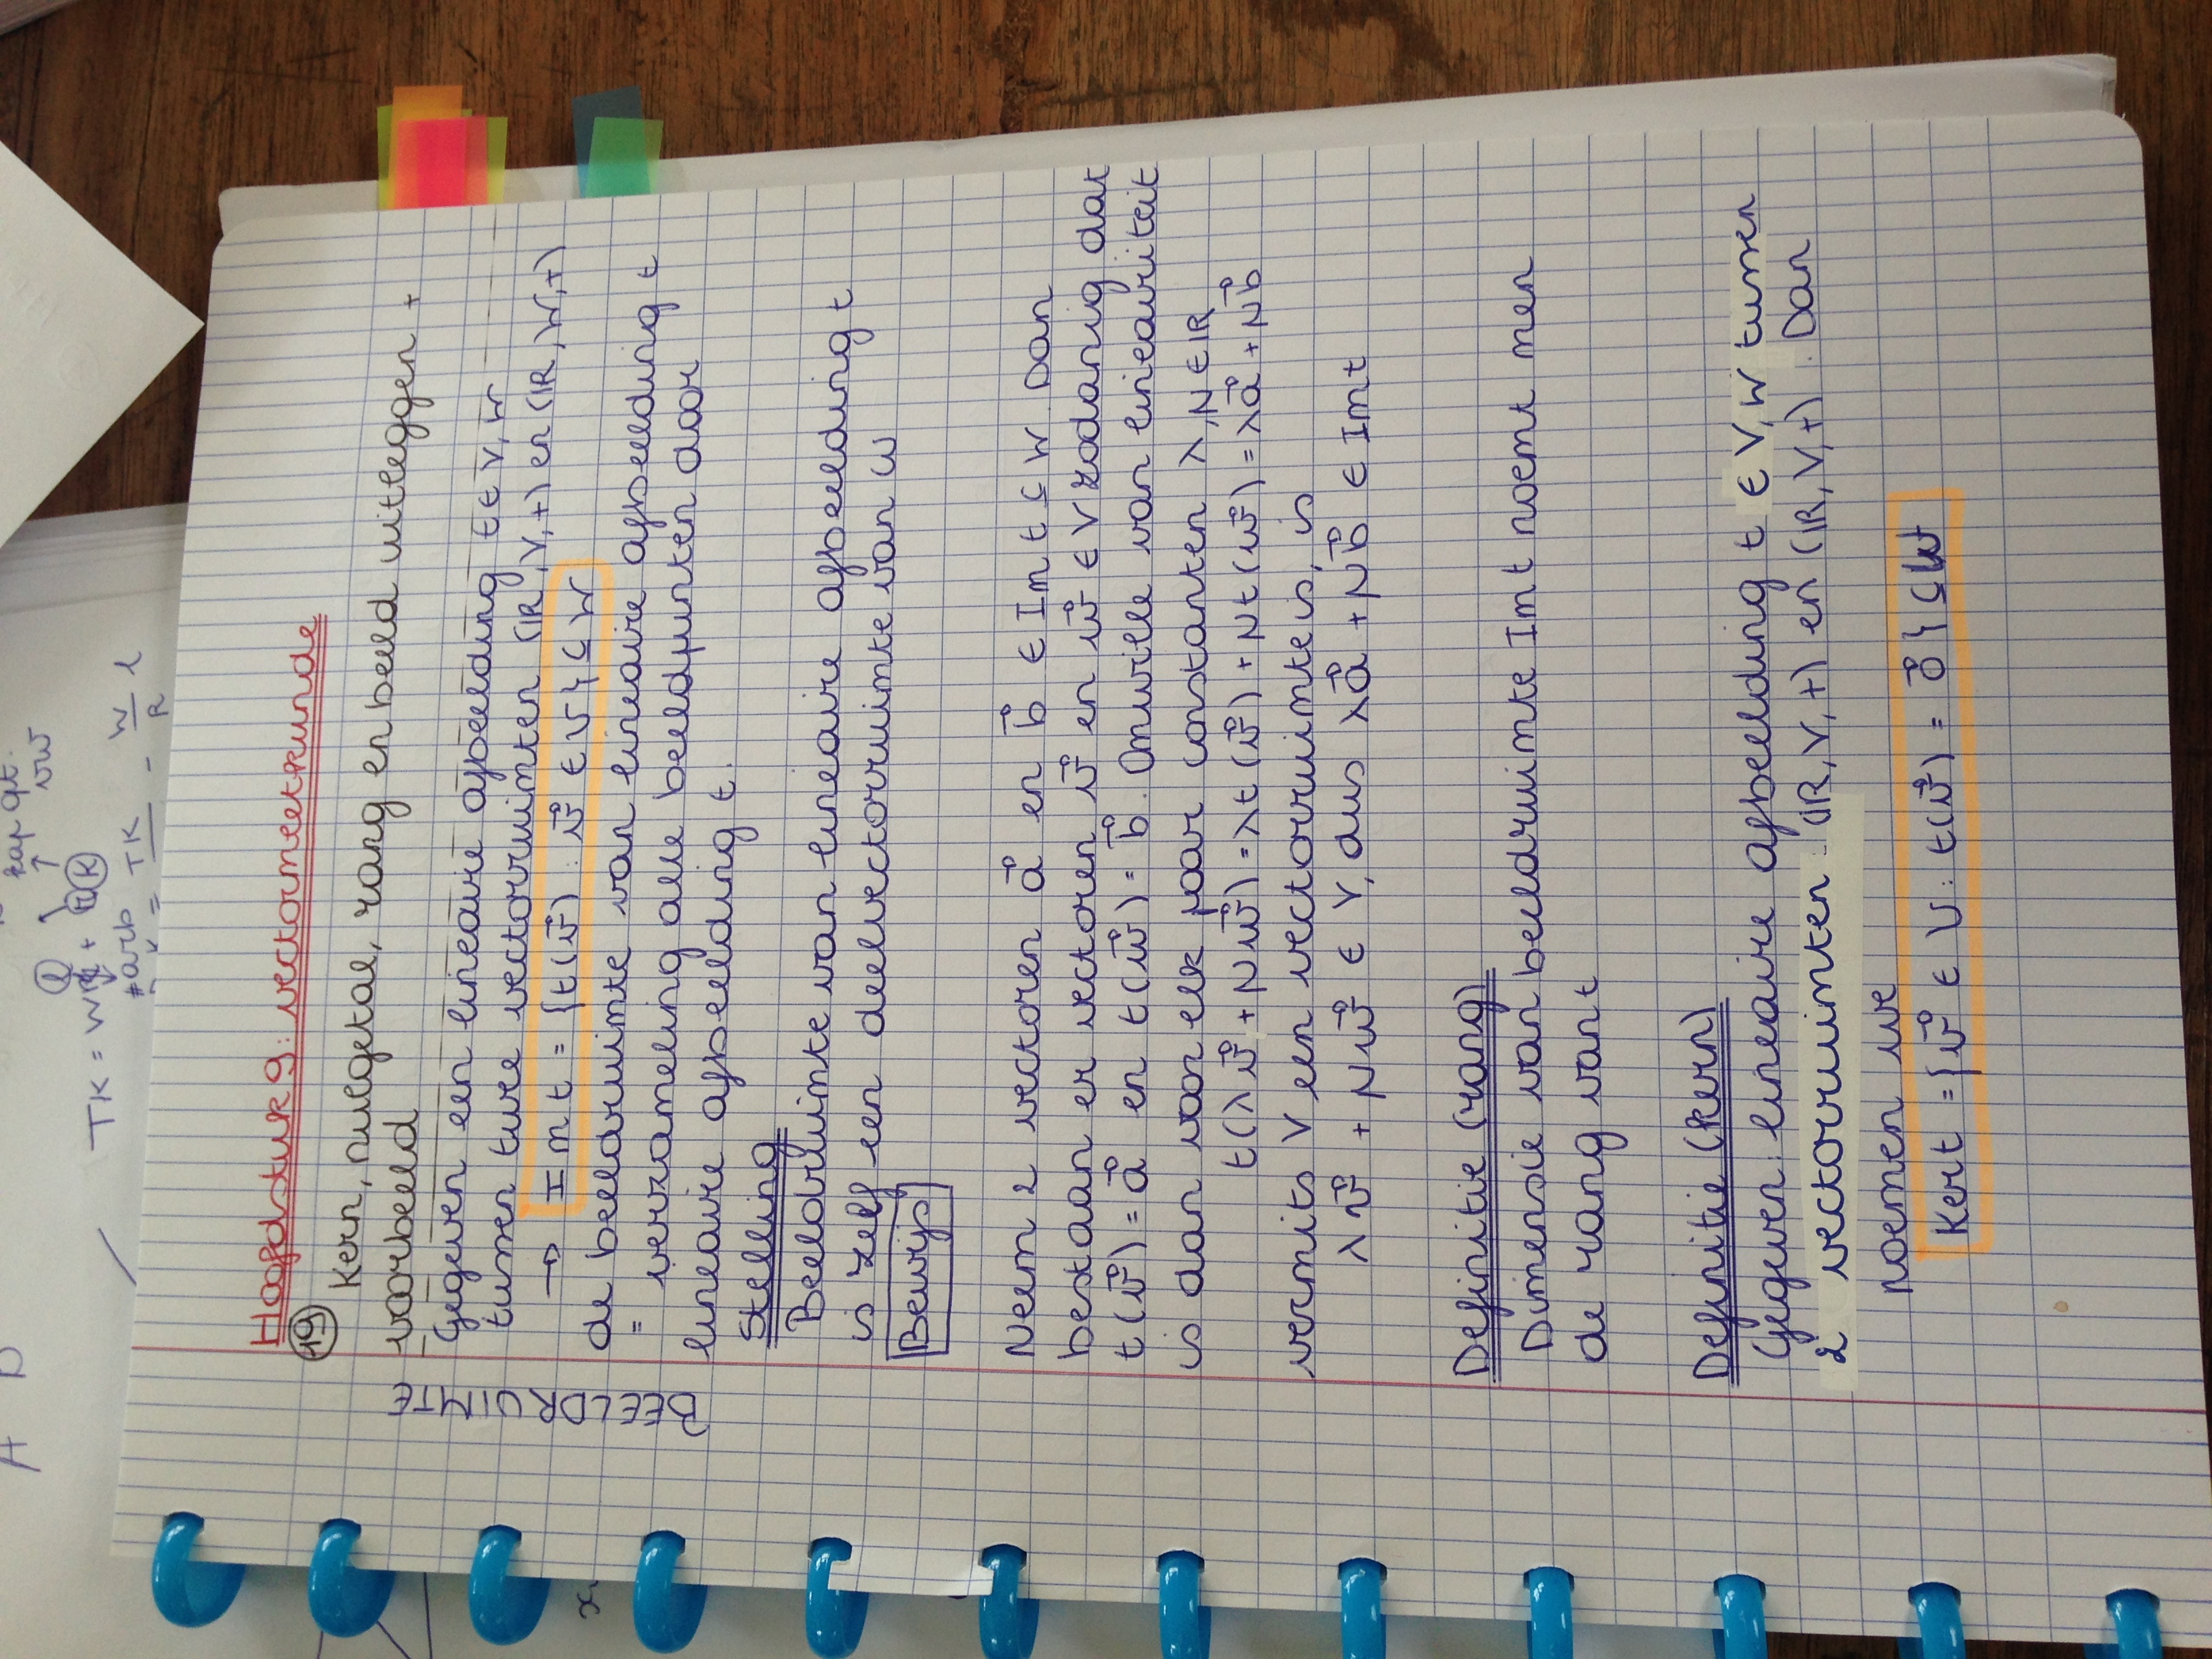 Hoofdstuk 9: vectormeetkunde
19 Kern, nulgetal, rang en beeld uitleggen +
voorbeeld
Gegeven een lineaire afbeelding t ∈ V, W
tussen twee vectorruimten (ℝ, V, +) en (ℝ, W, +)
→ Im t = {t(v⃗) : v⃗ ∈ V} ⊆ W
de beeldruimte van lineaire afbeelding t
= verzameling alle beeldpunten door
lineaire afbeelding t.
BEELDRUIMTE
Stelling
Beeldruimte van lineaire afbeelding t
is zelf een deelvectorruimte van W
Bewijs
Neem 2 vectoren a⃗ en b⃗ ∈ Im t ⊆ W. Dan
bestaan er vectoren v⃗ en w⃗ ∈ V zodanig dat
t(v⃗) = a⃗ en t(w⃗) = b⃗. Omwille van lineairiteit
is dan voor elk paar constanten λ, μ ∈ ℝ
t(λv⃗ + μw⃗) = λt(v⃗) + μt(w⃗) = λa⃗ + μb⃗
vermits V een vectorruimte is, is
λv⃗ + μw⃗ ∈ V, dus λa⃗ + μb⃗ ∈ Im t
Definitie (rang)
Dimensie van beeldruimte Im t noemt men
de rang van t
Definitie (kern)
Gegeven: lineaire afbeelding t ∈ V, W tussen
2 vectorruimten (ℝ, V, +) en (ℝ, V, +). Dan
noemen we
Ker t = {v⃗ ∈ V : t(v⃗) = o⃗} ⊆ W
TK = W
kap gt.
vw
#arb
TK
W
R